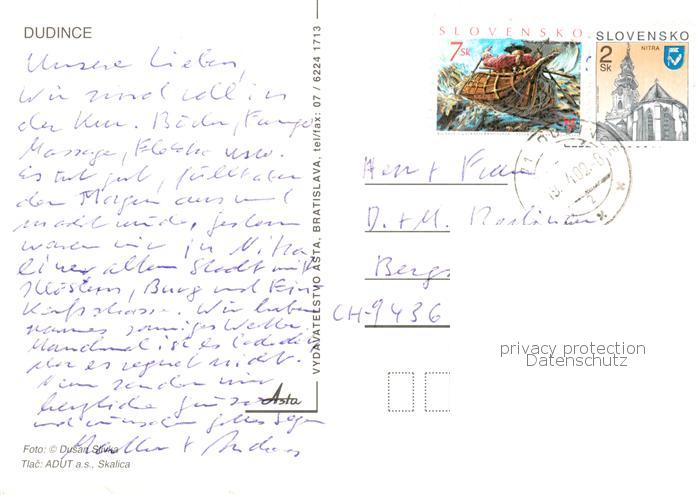 DUDINCE
Unsere Lieben,
Wir sind voll in
der Kur. Bäder, Fango
Massage, Elektro usw.
Es tut gut, füllt aber
den Morgen aus und
macht müde, gestern
waren wir in Nitra
einer alten Stadt mit
Klöstern, Burg und Ein-
kaufsstrasse. Wir haben
sonniges Wetter.
Manchmal ist es
aber es regnet nicht.
Nun senden wir
herzliche Grüsse
und wünschen Gottes Segen
+ Andreas
Foto: © Dušan Slivka
Tlač: ADUT a.s., Skalica
VYDAVATEĽSTVO ASTA, BRATISLAVA, tel/fax: 07 / 6224 1713
Asta
SLOVENSKO
7 SK
SLOVENSKO
2 Sk
NITRA
Herr + Frau
D. + M.
Bergs
CH-9436
privacy protection
Datenschutz